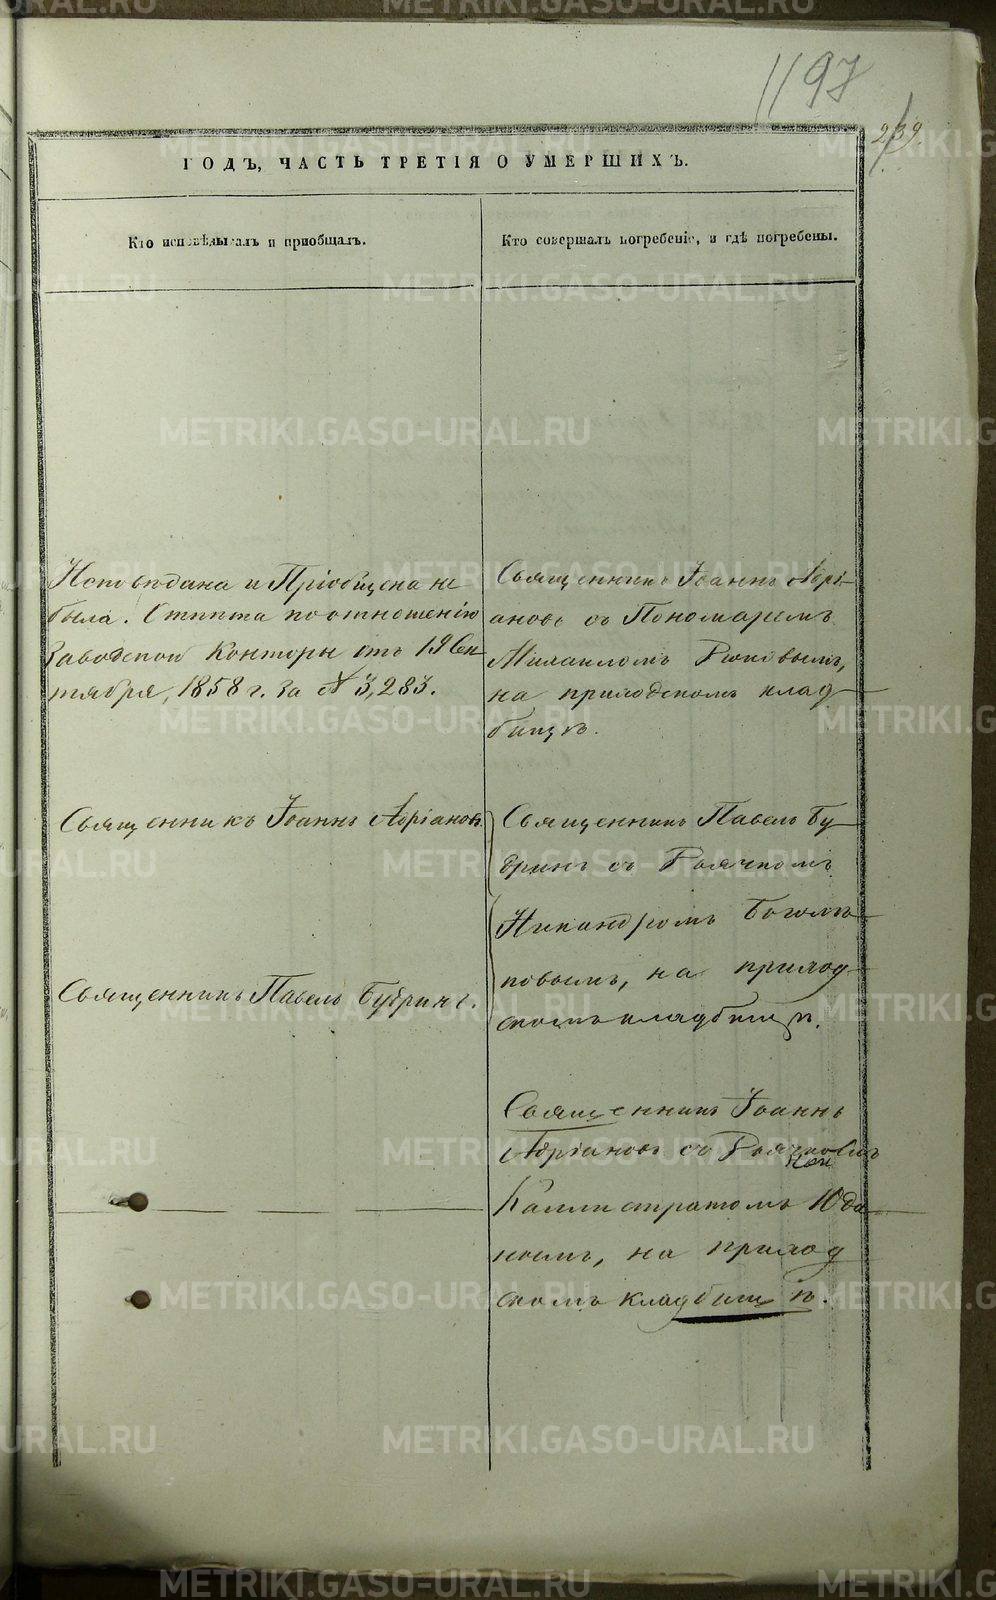 1197
239.
ГОДЪ, ЧАСТЬ ТРЕТІЯ О УМЕРШИХЪ.
Кто исповѣдывалъ и приобщалъ.
Кто совершалъ погребеніе, и гдѣ погребены.
Исповѣдана и Пріобщена не
была. Отпѣта по отношенію
Заводской Конторы отъ 19 Сен
тября, 1858 г. За № 3,283.
Священникъ Іоаннъ Адрі-
ановъ съ Пономаремъ
Михаиломъ
на приходскомъ клад
бищѣ.
Священникъ Іоаннъ Адріановъ.
Священникъ Павелъ Бу
дринъ съ Дьячкомъ
Никандромъ
повымъ, на приход
скомъ кладбищѣ.
Священникъ Павелъ Будринъ.
Священникъ Іоаннъ
Адріановъ съ Дьячковымъ
Каллистратомъ Юда
нымъ, на приход
скомъ кладбищѣ.
METRIKI.GASO-URAL.RU